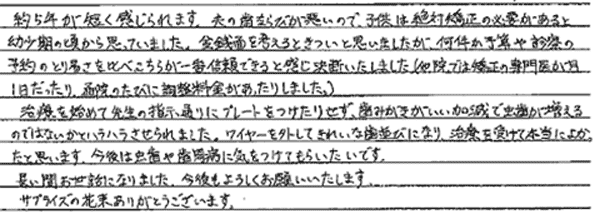 約5年が短く感じられます。夫の歯ならびが悪いので、子供は絶対矯正の必要があると
幼少期の頃から思っていました。金銭面を考えるときついと思いましたが、何件か予算や診察の
予約のとり易さを比べこちらが一番信頼できると感じ決断いたしました(他院では矯正の専門医が月
1日だったり、通院のたびに調整料金があったりしました。)
治療を始めて先生の指示通りにプレートをつけたりせず、歯みがきがいい加減で虫歯が増える
のではないかとハラハラさせられました。ワイヤーを外してきれいな歯並びになり、治療を受けて本当によかっ
たと思います。今後は虫歯や歯周病に気をつけてもらいたいです。
長い間お世話になりました。今後もよろしくお願いいたします。
サプライズの花束ありがとうございます。